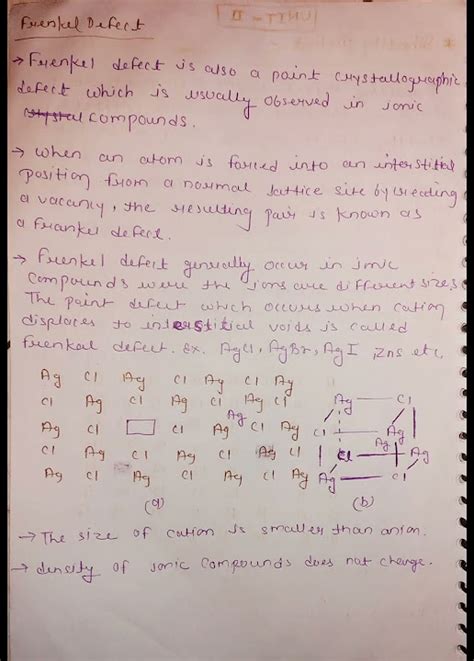 Frenkel Defect
→ Frenkel defect is also a point crystallographic
defect which is usually observed in ionic
crystal compounds.
→ when an atom is forced into an interstitial
position from a normal lattice site by creating
a vacancy, the resulting pair is known as
a Frankel defect.
→ Frenkel defect generally occur in ionic
compounds were the ions are different sizes.
The point defect which occurs when cation
displaces to interstitial voids is called
Frenkal defect. Ex. AgCl, AgBr, AgI, ZnS etc.
Ag Cl Ag Cl Ag Cl Ag
Cl Ag Cl Ag Cl Ag Cl
Ag
Ag Cl Cl Ag Cl Ag
Cl Ag Cl Ag Cl Ag Cl
Ag Cl Ag Cl Ag Cl Ag
(a)
Ag Cl
Cl Ag
Ag
Cl Ag
Ag Cl
(b)
→ The size of cation is smaller than anion.
→ density of ionic compounds does not change.